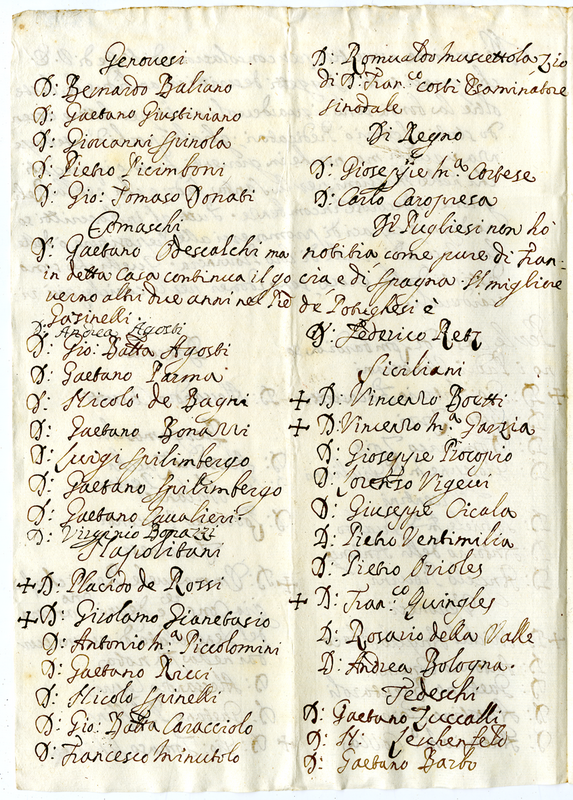 Genovesi
D: Bernardo Baliano
D: Gaetano Giustiniano
D: Giovanni Spinola
D: Pietro Picimboni
D: Gio: Tomaso Donati
Comaschi
D: Gaetano Odescalchi ma
in detta Casa continua il go
verno altri due anni nel Piè
Gasinelli
D: Andrea Agosti
D: Gio: Batta Agosti
D: Gaetano Parma
D: Nicolò de Bagni
D: Gaetano Bonazzi
D: Luigi Spilimbergo
D: Gaetano Spilimbergo
D: Gaetano Cavalieri
D: Virginio Bonazzi
Napolitani
+ D: Placido de Rossi
+ D: Girolamo Gianettasio
D: Antonio M.ª Piccolomini
D: Gaetano Ricci
D: Nicolo Spinelli
D: Gio: Batta Caracciolo
D: Francesco Minutolo
D: Romualdo Muscettola Zio
di D: Fran.co costì Esaminatore
sinodale
Di Regno
D: Gioseppe M.ª Cortese
D: Carlo Caropresa
Di Pugliesi non hò
notitia come pure di Fran-
cia e di Spagna. Il migliore
de Potighesi è
D: Federico Retz
Siciliani
+ D: Vincenzo Boutti
+ D: Vincenzo M.ª Garzia
D: Gioseppe Procopio
D: Lorenzo Vigevi
D: Giuseppe Cicala
D: Pietro Ventimilia
D: Pietro Orioles
+ D: Fran.co Quingles
D: Rosario della Valle
D: Andrea Bologna.
Tedeschi
D: Gaetano Zuccalli
D: N: Lerchenfeld
D: Gaetano Barbo